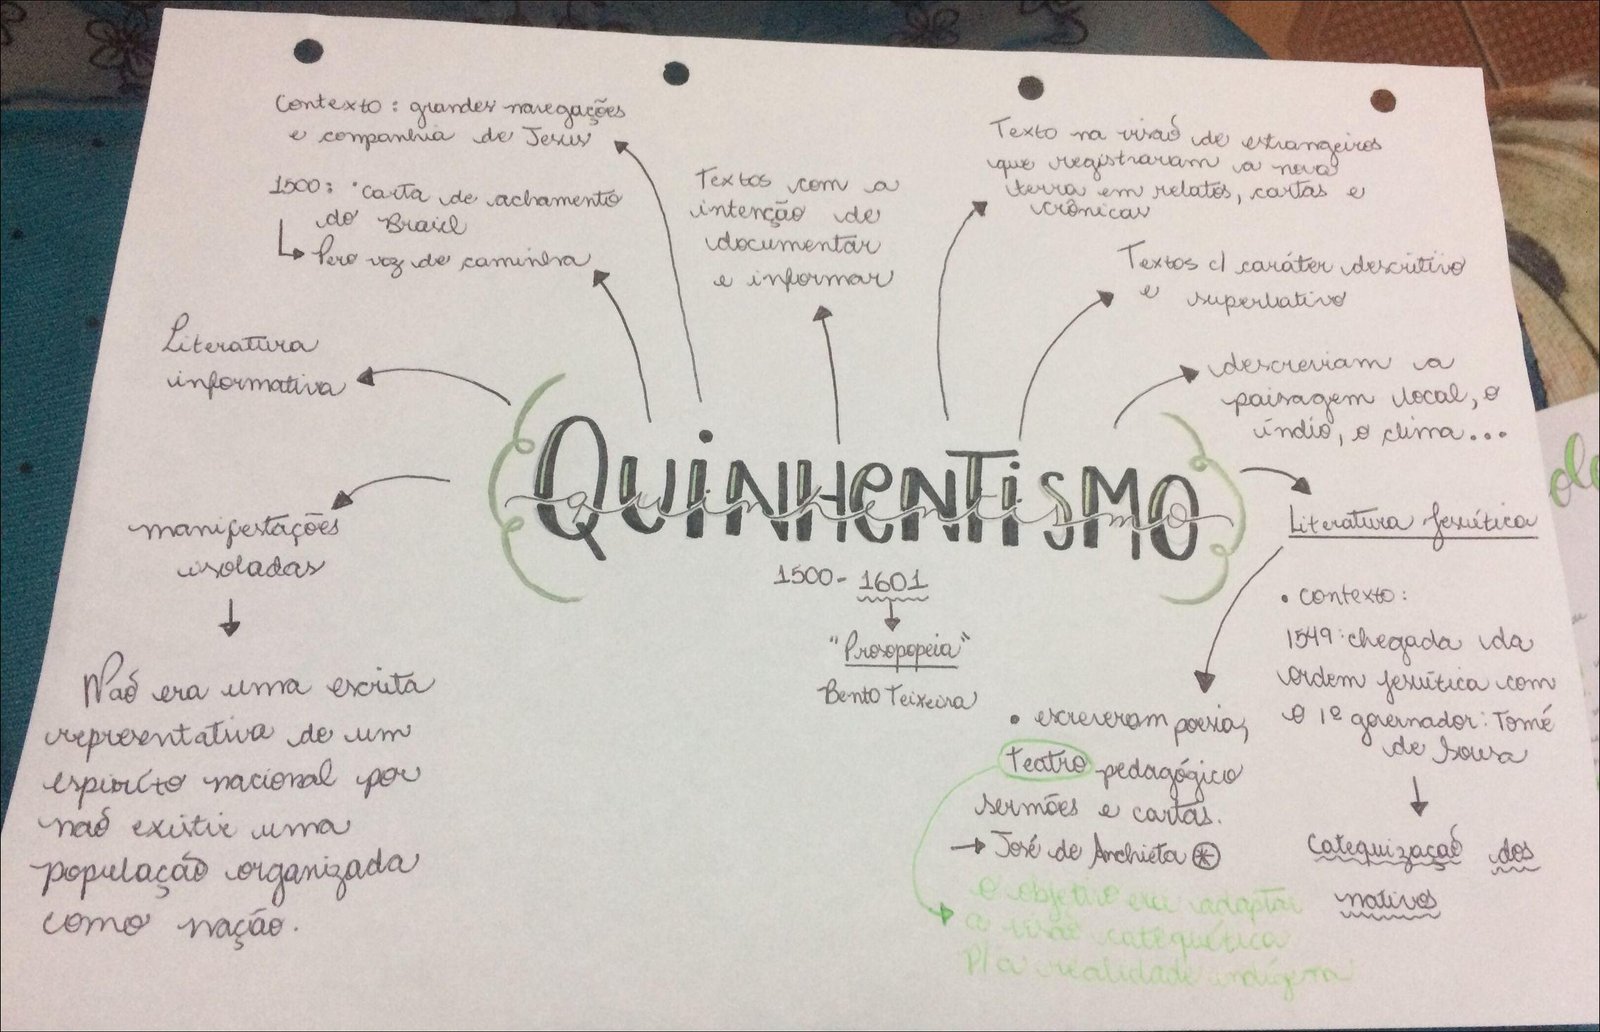 Contexto: grandes navegações
e companhia de Jesus
1500: "carta de achamento
do Brasil
Pero vaz de caminha
Textos com a
intenção de
documentar
e informar
Texto na visão de estrangeiros
que registraram a nova
terra em relatos, cartas e
crônicas
Textos c/ caráter descritivo
e superlativo
descreviam a
paisagem local, o
índio, o clima...
Literatura
informativa
manifestações
isoladas
Não era uma escrita
representativa de um
espírito nacional por
não existir uma
população organizada
como nação.
QUINHENTISMO
quinhentismo
1500-1601
"Prosopopeia"
Bento Teixeira
Literatura Jesuítica
• contexto:
1549: chegada da
ordem jesuítica com
o 1º governador: Tomé
de Sousa
Catequização dos
nativos
• escreveram poesia,
Teatro pedagógico
sermões e cartas.
→ José de Anchieta
o objetivo era adaptar
a visão catequética
p/ a realidade indígena